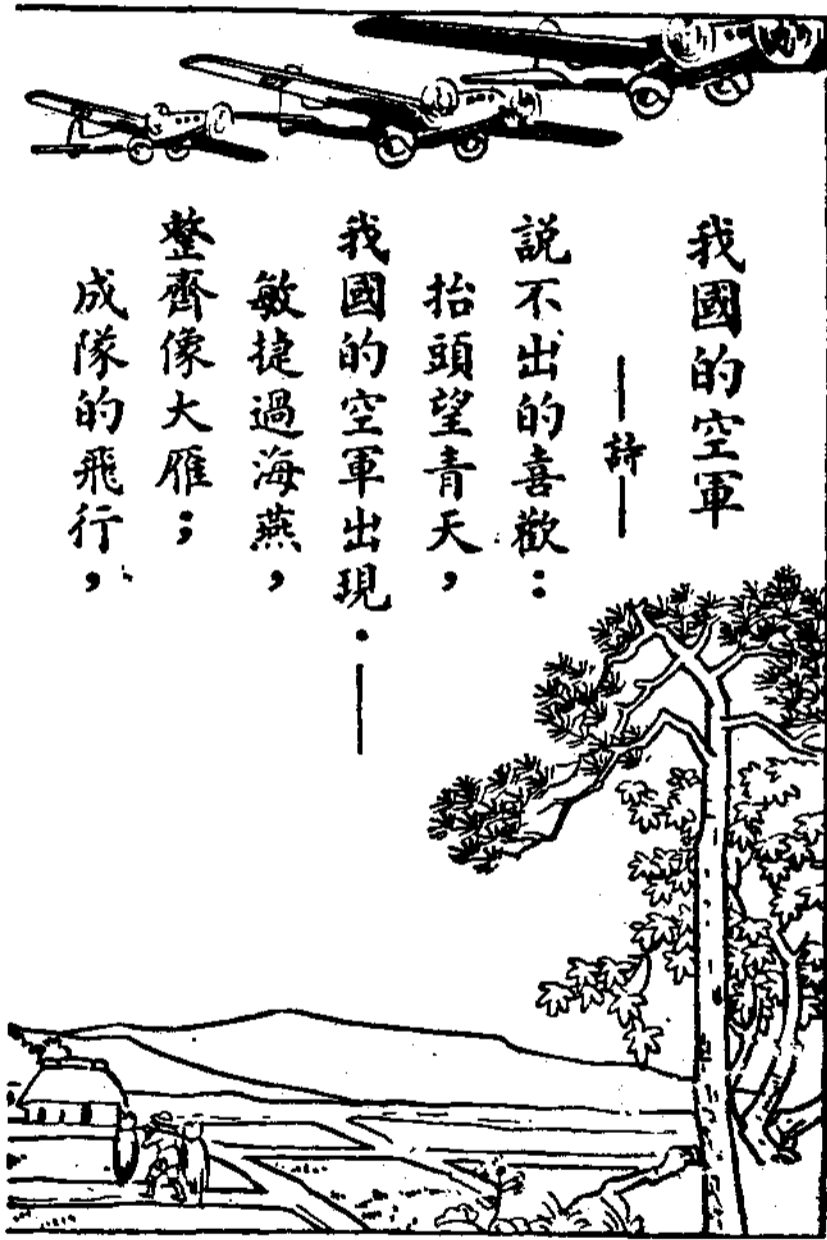 我國的空軍
——詩——
說不出的喜歡：
抬頭望青天，
我國的空軍出現．——
敏捷過海燕，
整齊像大雁；
成隊的飛行，